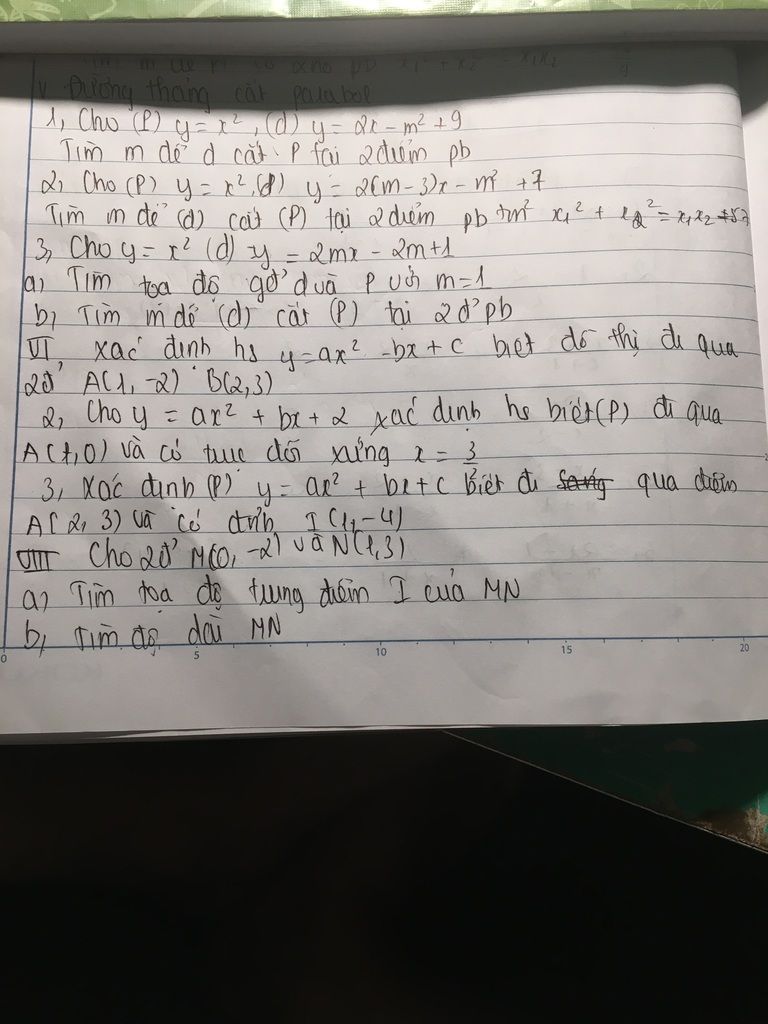 V Đường thẳng cắt parabol
1, Cho (P) y = x², (d) y = 2x - m² + 9
Tìm m để d cắt P tại 2 điểm pb
2, Cho (P) y = x², (d) y = 2(m-3)x - m² + 7
Tìm m để (d) cắt (P) tại 2 điểm pb tm² x₁² + x₂² = x₁x₂
3, Cho y = x² (d) y = 2mx - 2m+1
a, Tìm tọa độ gđ' d và P với m=1
b, Tìm m để (d) cắt (P) tại 2đ' pb
VI, xác định hs y = ax² - bx + c biết đồ thị đi qua
2đ' A(1, -2) B(2,3)
2, Cho y = ax² + bx + 2 xác định hs biết (P) đi qua
A(1,0) và có trục đối xứng x = 3/2
3, Xác định (P) y = ax² + bx + c biết đi qua điểm
A(2, 3) và có đỉnh I(1,-4)
VIII Cho 2đ' M(0, -2) và N(1,3)
a, Tìm tọa độ trung điểm I của MN
b, Tìm độ dài MN
0 5 10 15 20